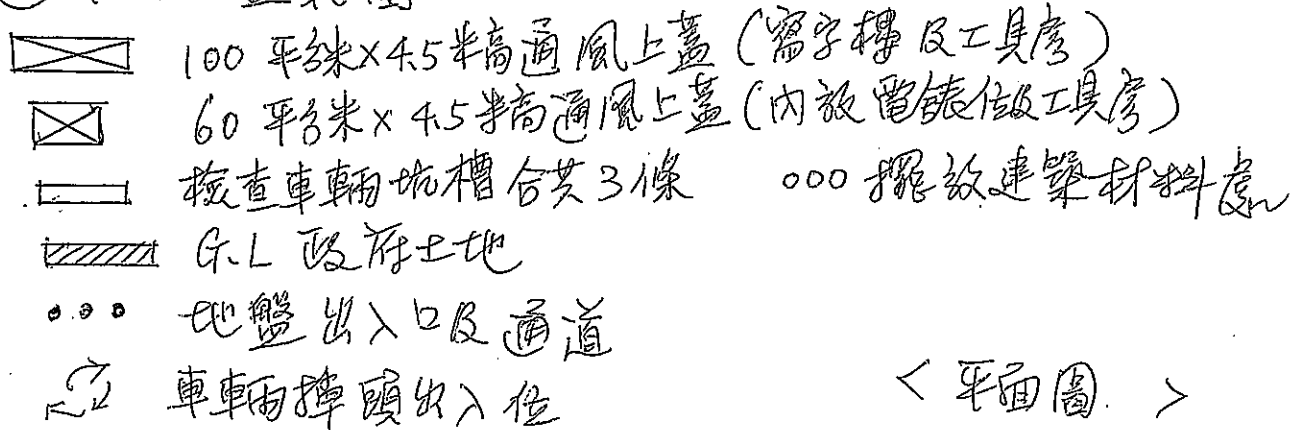 100 平方米×4.5米高通風上蓋(寫字樓及工具房)
60 平方米×4.5米高通風上蓋(內放電錶位及工具房)
檢查車輛坑槽合共3條 000 擺放建築材料處
G.L 政府土地
地盤出入口及通道
車輛掉頭出入位
<平面圖.>